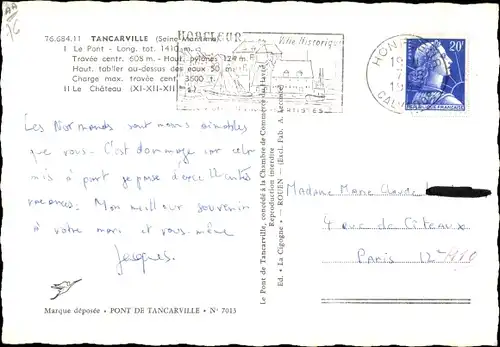 76.684.11 TANCARVILLE (Seine-Maritime)
I Le Pont - Long. tot. 1410 m.
Travée centr. 608 m. - Haut. pylônes 124 m.
Haut. tablier au-dessus des eaux 50 m.
Charge max. travée cent. 3500 t.
II Le Château (XI-XII-XIII s.)
HONFLEUR
Ville Historique
20F
REPUBLIQUE FRANÇAISE
HON
CAL
Les Normands sont moins aimables
que vous. C'est dommage car cela
mis à part je passe d'excellentes
vacances. Mon meilleur souvenir
à votre mari et vous-même
Jacques.
Le Pont de Tancarville, concédé à la Chambre de Commerce du Havre
Reproduction interdite
Ed. « La Cigogne » - ROUEN - (Excl. Fab. A. Leconte)
Madame Marie Claude
4 rue de Citeaux
PARIS 12e
Marque déposée - PONT DE TANCARVILLE - N° 7013